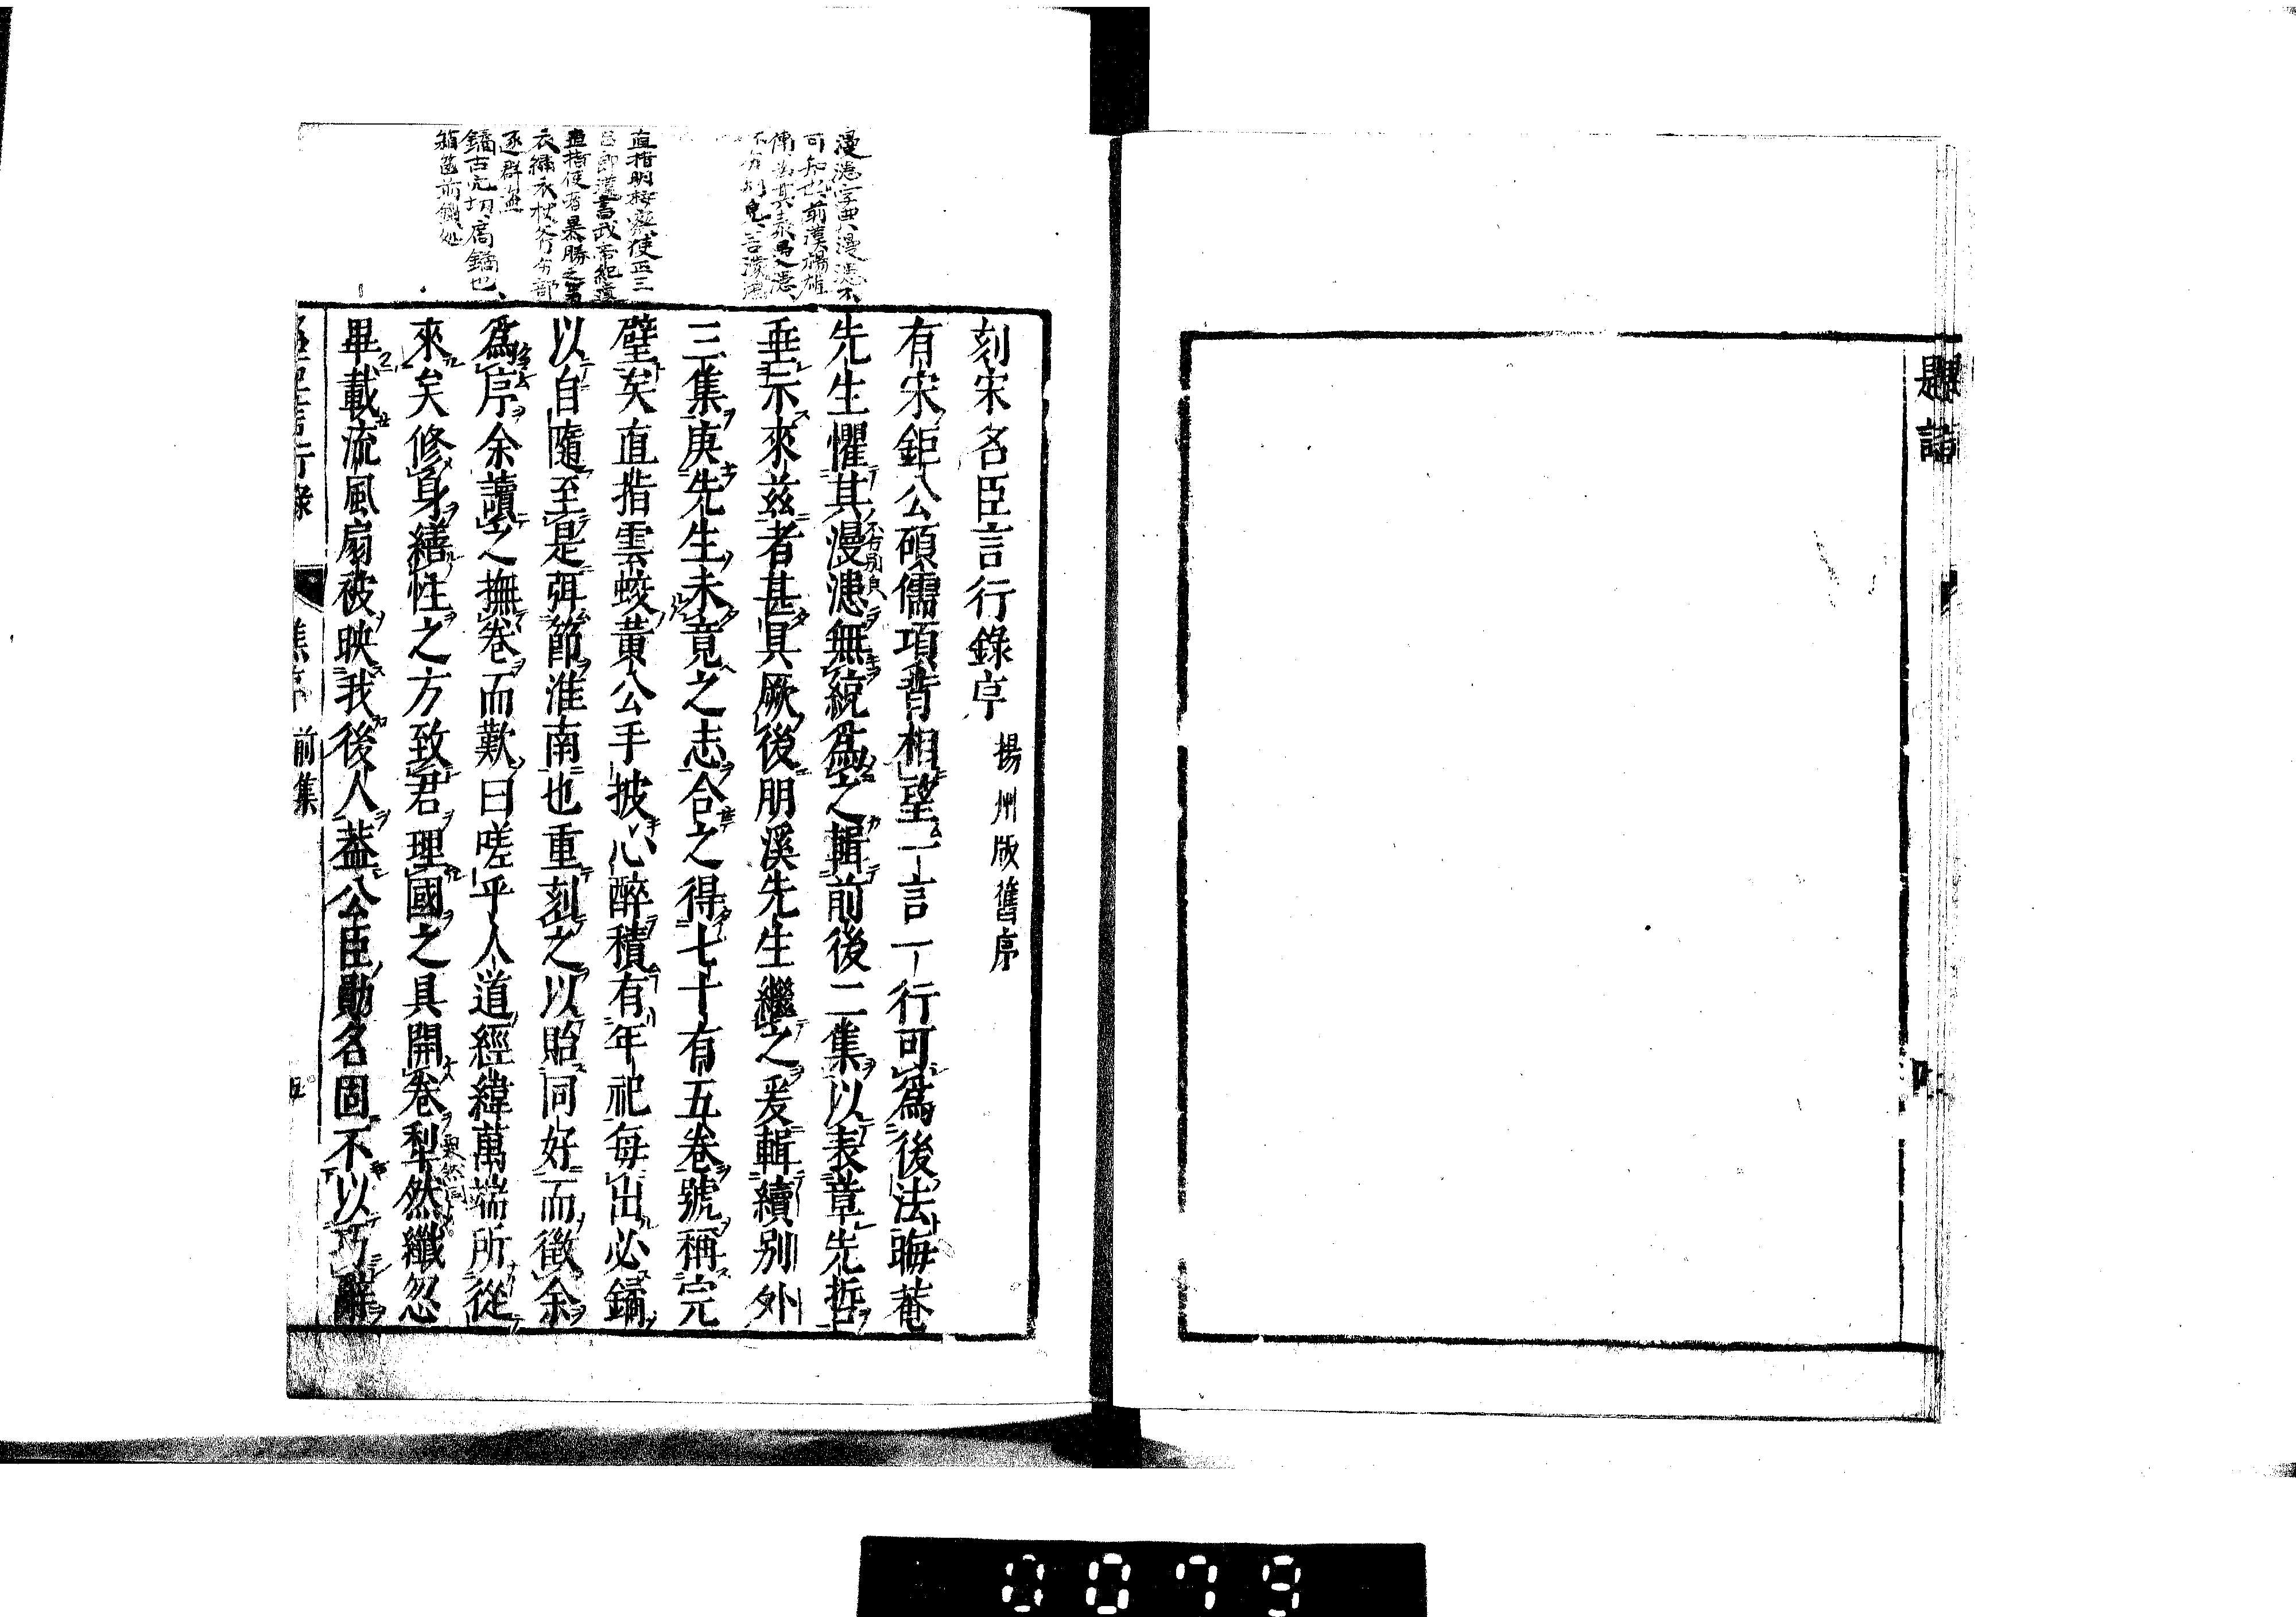 題詰
漫漶字典漫漶不
可知也前漢楊雄
傳為其泰曼漶
不分別皃言濛鴻
直指明按察使正三
直指使者暴勝之等
衣繡衣杖斧分部
逐群盜
鐍古穴切扃鐍也
箱篋前鎖処
刻宋名臣言行錄序 揚州版舊序
有宋鉅公碩儒項背相望一言一行可為後法晦菴
先生懼其漫漶無統為之輯前後二集以表章先哲
垂示來茲者甚具厥後朋溪先生繼之爰輯續別外
三集庚先生未竟之志合之得七十有五卷號稱完
璧矣直指雲蛟黃公手披心醉積有年祀每出必鐍
以自隨至是弭節淮南也重刻之以貽同好而徵余
為序余讀之撫卷而歎曰嗟乎人道經緯萬端所從
來矣修身繕性之方致君理國之具開卷犁然纖忽
畢載流風扇被映我後人蓋公臣勛名固不以巧辭
言行錄 焦序 前集 五
0079